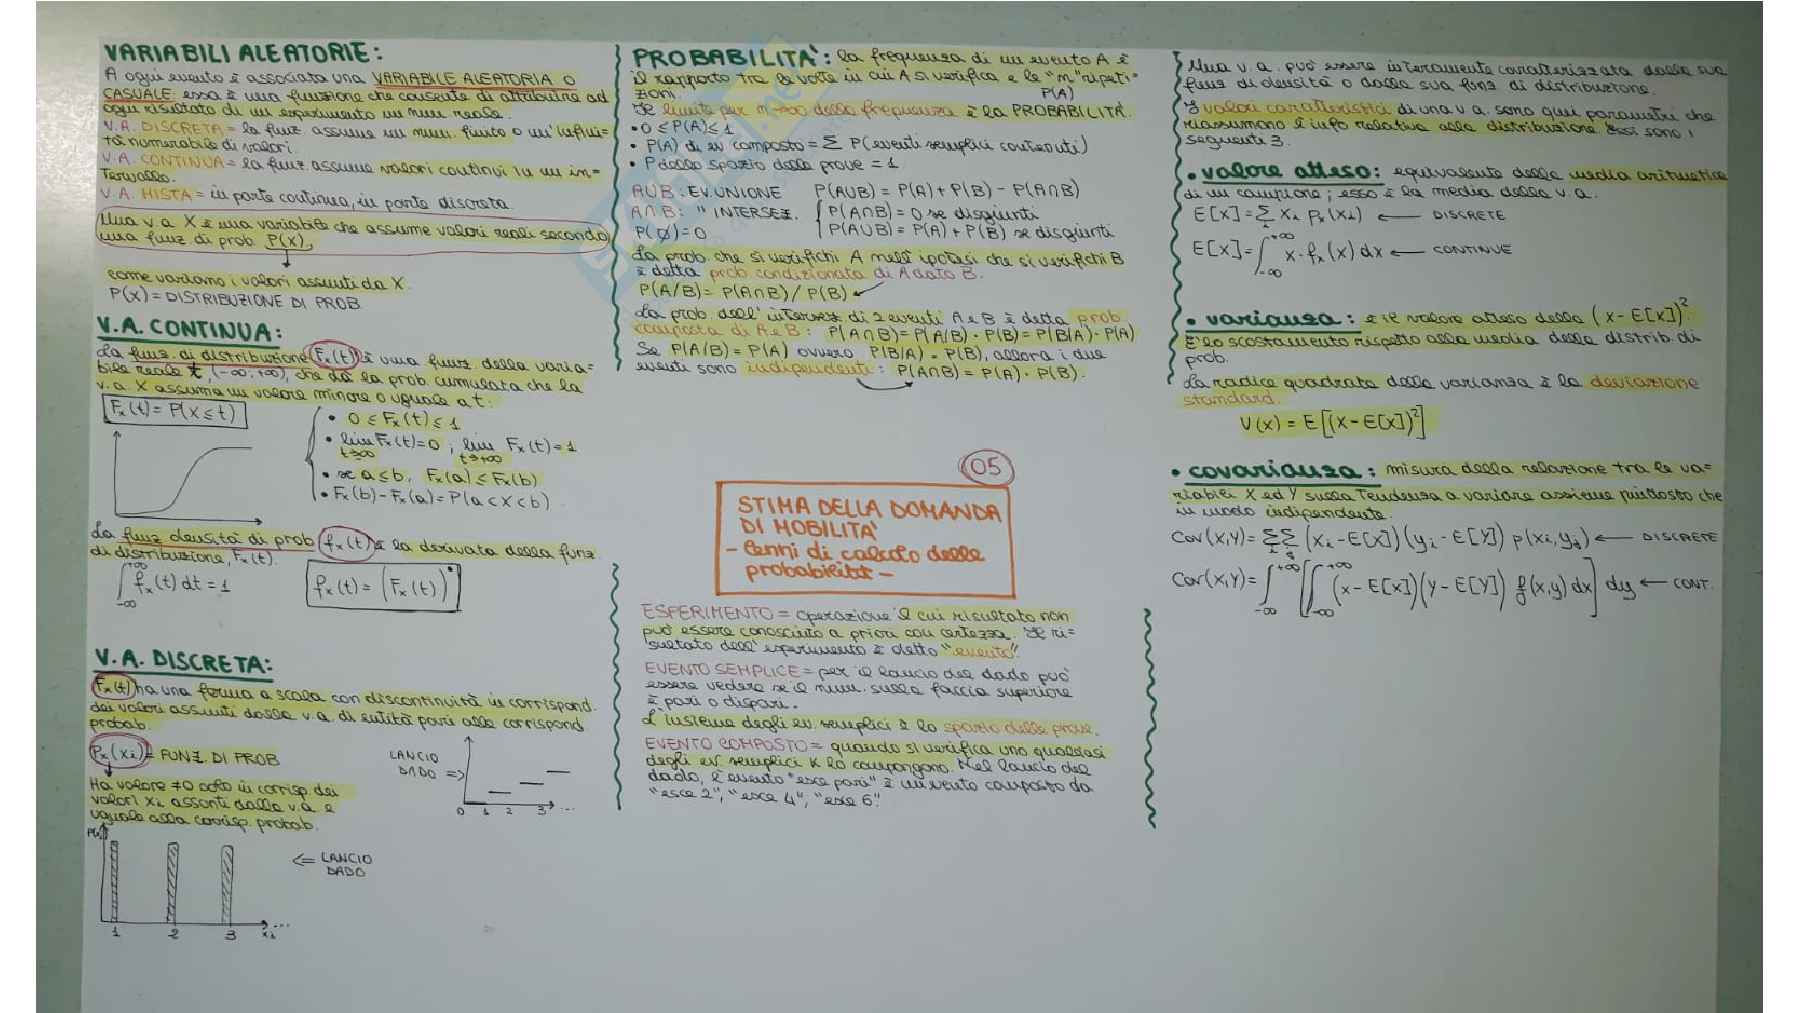 VARIABILI ALEATORIE:
A ogni evento è associata una VARIABILE ALEATORIA O
CASUALE: essa è una funzione che consente di attribuire ad
ogni risultato di un esperimento un num reale.
V.A. DISCRETA = la funz assume un num. finito o un'infini=
tà numerabile di valori.
V.A. CONTINUA = la funz assume valori continui in un in=
tervallo.
V.A. MISTA = in parte continua, in parte discreta.
Una v.a X è una variabile che assume valori reali secondo
una funz di prob. P(X),
come variano i valori assunti da X.
P(X) = DISTRIBUZIONE DI PROB.
V.A. CONTINUA:
La funz. di distribuzione Fx(t) è una funz. della varia=
bile reale t, (-∞;+∞), che dà la prob. cumulata che la
v.a. X assuma un valore minore o uguale a t:
Fx(t) = P(X≤t)
• 0 ≤ Fx(t) ≤ 1
• lim Fx(t)=0 ; lim Fx(t)=1
t→-∞ t→+∞
• se a≤b, Fx(a) ≤ Fx(b)
• Fx(b) - Fx(a) = P(a<X<b).
La funz densità di prob fx(t) è la derivata della funz
di distribuzione, Fx(t).
∫ fx(t) dt = 1
+∞
-∞
fx(t) = (Fx(t))'
V.A. DISCRETA:
Fx(t) ha una forma a scala con discontinuità in corrispond.
dei valori assunti dalla v.a. di entità pari alla corrispond
probab.
Px(xi) = FUNZ. DI PROB
Ha valore ≠0 solo in corrisp dei
valori xi assunti dalla v.a. e
uguale alla corrisp. probab.
LANCIO
DADO =>
0 1 2 3 ...
<= LANCIO
DADO
1 2 3 xi ...
PROBABILITÀ: la frequenza di un evento A è
il rapporto tra le volte in cui A si verifica e le "m" ripeti=
zioni.
P(A)
Il limite per m→∞ della frequenza è la PROBABILITÀ.
• 0 ≤ P(A) ≤ 1
• P(A) di ev composto = Σ P(eventi semplici contenuti)
• P dello spazio delle prove = 1
A∪B: EV. UNIONE P(A∪B) = P(A) + P(B) - P(A∩B)
A∩B: " INTERSEZ. P(A∩B) = 0 se disgiunti
P(∅) = 0 P(A∪B) = P(A) + P(B) se disgiunti
La prob. che si verifichi A nell'ipotesi che si verifichi B
è detta prob condizionata di A dato B.
P(A/B) = P(A∩B) / P(B)
La prob dell'intersez di 2 eventi A e B è detta prob
composta di A e B: P(A∩B) = P(A/B) · P(B) = P(B/A) · P(A)
Se P(A/B) = P(A) ovvero P(B/A) = P(B), allora i due
eventi sono indipendenti: P(A∩B) = P(A) · P(B).
05
STIMA DELLA DOMANDA
DI MOBILITÀ
- Cenni di calcolo delle
probabilità -
ESPERIMENTO = operazione il cui risultato non
può essere conosciuto a priori con certezza. Il ri=
sultato dell'esperimento è detto "evento".
EVENTO SEMPLICE = per il lancio del dado può
essere vedere se il num. sulla faccia superiore
è pari o dispari.
L'insieme degli ev. semplici è lo spazio delle prove.
EVENTO COMPOSTO = quando si verifica uno qualsiasi
degli ev semplici k lo compongono. Nel lancio del
dado, l'evento "esce pari" è un evento composto da
"esce 2", "esce 4", "esce 6".
Una v.a. può essere interamente caratterizzata dalla sua
funz di densità o dalla sua funz di distribuzione.
I valori caratteristici di una v.a. sono quei parametri che
riassumono l'info relativa alla distribuzione. Essi sono i
seguenti 3.
• valore atteso: equivalente della media aritmetica
di un campione; esso è la media della v.a.
E[X] = Σ xi px(xi) ← DISCRETE
i
E[X] = ∫ x·fx(x) dx ← CONTINUE
+∞
-∞
• varianza: è il valore atteso della (x - E[X])².
È lo scostamento rispetto alla media della distrib. di
prob.
La radice quadrata della varianza è la deviazione
standard.
V(x) = E[(X - E[X])²]
• covarianza: misura della relazione tra le va=
riabili X ed Y sulla tendenza a variare assieme piuttosto che
in modo indipendente.
Cov(X,Y) = ΣΣ (xi - E[X])(yj - E[Y]) p(xi,yj) ← DISCRETE
i j
Cov(X,Y) = ∫[∫ (x - E[X])(y - E[Y]) f(x,y) dx] dy ← CONT.
+∞ +∞
-∞ -∞